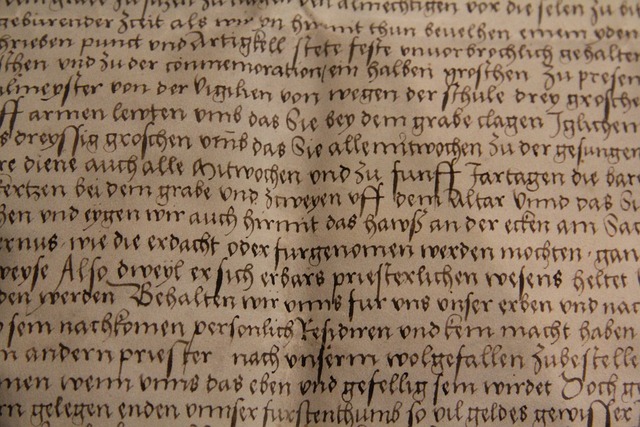 almechtigen vor die selen zu
geburender Zceit als wir yn hirmit thun bevelhen einem yden
hrieben punct und Artigkell stete feste unvorbrochlich gehalten
schen und zu der commemoration ein halben groschen zu presen
ulmeyster von der vigilien von wegen der schule drey grosche
uff armen lewten umb das Sie bey dem grabe clagen Iglichen
s dreyssig groschen umb das Sie alle mitwochen zu der gesungen
re diene auch alle Mitwochen und zu funff Jartagen die bare
kertzen bei dem grabe und zweyen uff dem Altar Unnd das Si
hen und eygen wir auch hirmit das hawß an der ecken am Sac
ernus wie die erdacht oder furgenomen werden mochten gan
weyse Also dweyl er sich erbars priesterlichen wesens heltet
den werden Behalten wir unns fur uns unser erben und nac
sein nachkomen personlich Residiren und kein macht haben
n andern priester nach unserm wolgefallen zubestelle
men wenn unns das eben und gefellig sein wirdet Doch ge
rn gelegen enden unnser furstenthumb so vil geldes gewisser